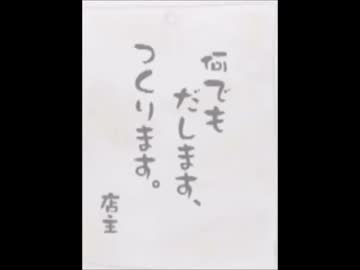 何でも
だします、
つくります。
店主